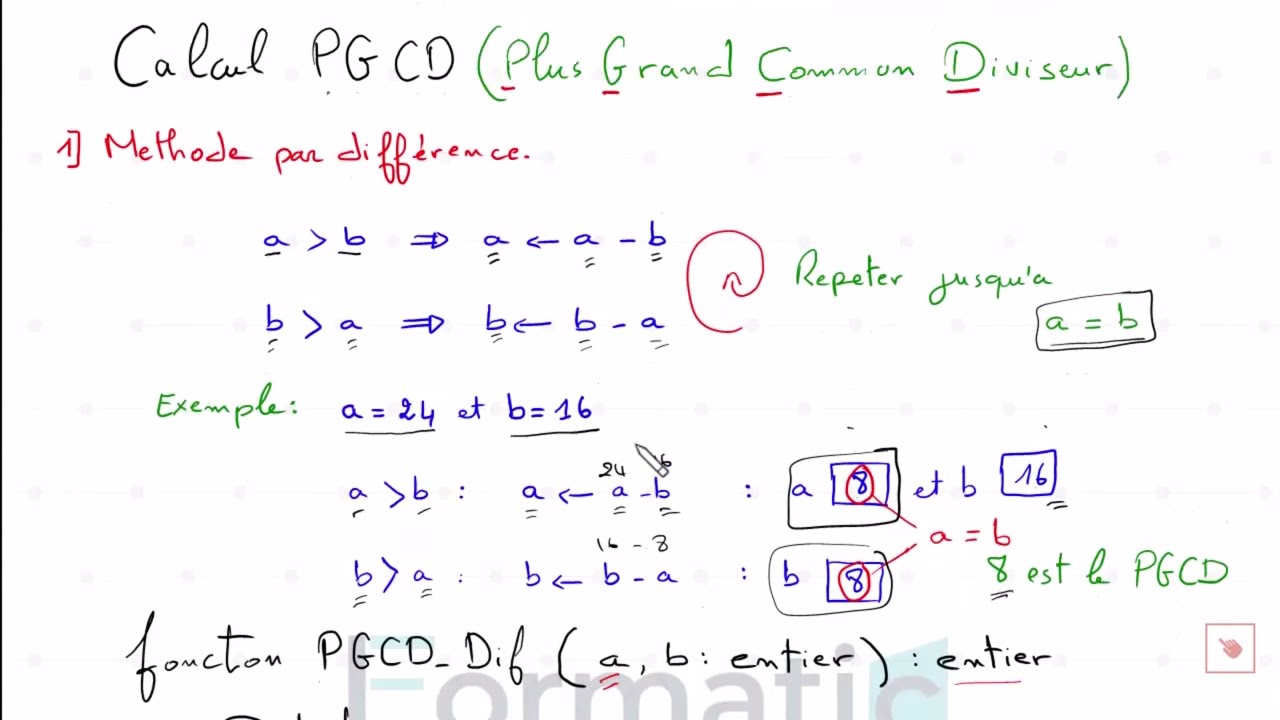 Calcul PGCD (Plus Grand Common Diviseur)
1] Methode par différence.
a > b ⇒ a ← a - b
b > a ⇒ b ← b - a
Repeter jusqu'a
a = b
Exemple: a = 24 et b = 16
24
a > b : a ← a - b : a 8 et b 16
16 - 8
a = b
b > a : b ← b - a : b 8
8 est le PGCD
fonction PGCD_Dif (a, b: entier) : entier
Formatic